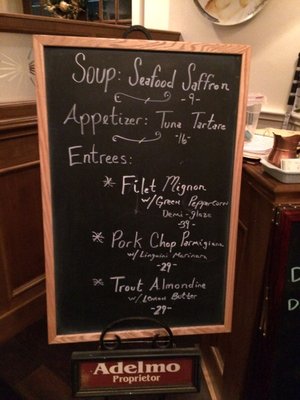 Soup: Seafood Saffron
-9-
Appetizer: Tuna Tartare
-16-
Entrees:
* Filet Mignon
w/ Green Peppercorn
Demi-glaze
-39-
* Pork Chop Parmigiana
w/ Linguini Marinara
-29-
* Trout Almondine
w/ Lemon Butter
-29-
Adelmo
Proprietor